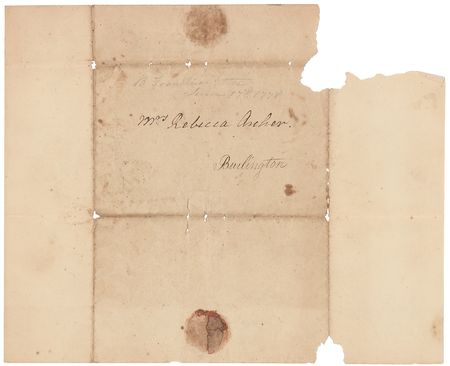 B Franklin
June 17th 1778
Mrs Rebecca Archer.
Burlington